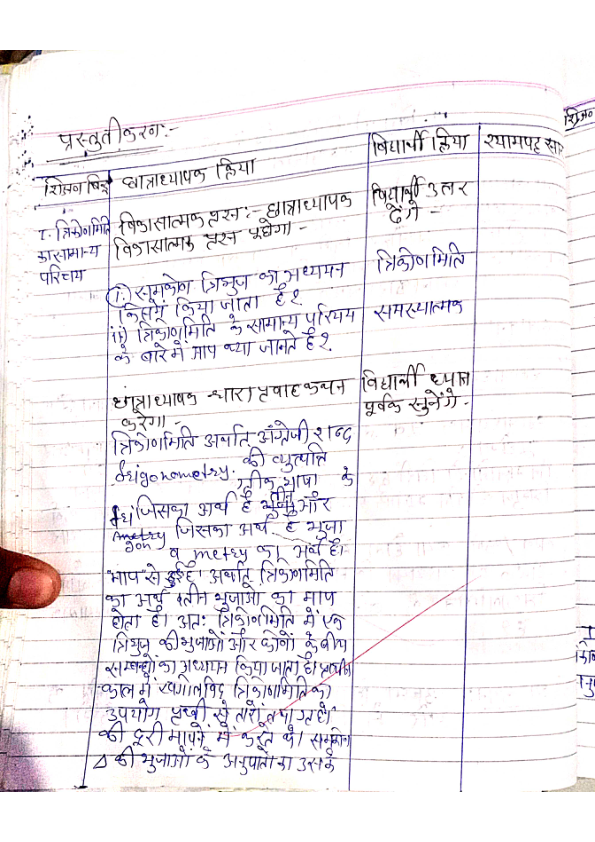 प्रस्तुतीकरण:-
शिक्षण बिन्दु छात्राध्यापक क्रिया विद्यार्थी क्रिया श्यामपट्ट सार
1. त्रिकोणमिति
का सामान्य
परिचय
विकासात्मक प्रश्न:- छात्राध्यापक
विकासात्मक प्रश्न पूछेगा।-
विद्यार्थी उत्तर
देंगे -
(i) समकोण त्रिभुज का अध्ययन
किसमें किया जाता है?
त्रिकोणमिति
ii) त्रिकोणमिति के सामान्य परिचय
के बारे में आप क्या जानते है?
समस्यात्मक
छात्राध्यापक धारा प्रवाह कथन
करेगा।-
विद्यार्थी ध्यान
पूर्वक सुनेंगे-
त्रिकोणमिति अर्थात् अंग्रेजी शब्द
trigonometry. की व्युत्पत्ति
ग्रीक भाषा के
जिसका अर्थ है तीन और
gon जिसका अर्थ है भुजा
व metry का अर्थ है।
माप से हुई है। अर्थात् त्रिकोणमिति
का अर्थ तीन भुजाओं का माप
होता है। अतः त्रिकोणमिति में एक
त्रिभुज की भुजाओं और कोनों के बीच
सम्बन्धों का अध्ययन किया जाता है। प्राचीन
काल में खगोलविद त्रिकोणमिति का
उपयोग पृथ्वी से तारों तथा ग्रहों
की दूरी मापने में करते थे। समकोण
△ की भुजाओं के अनुपातों का उसके